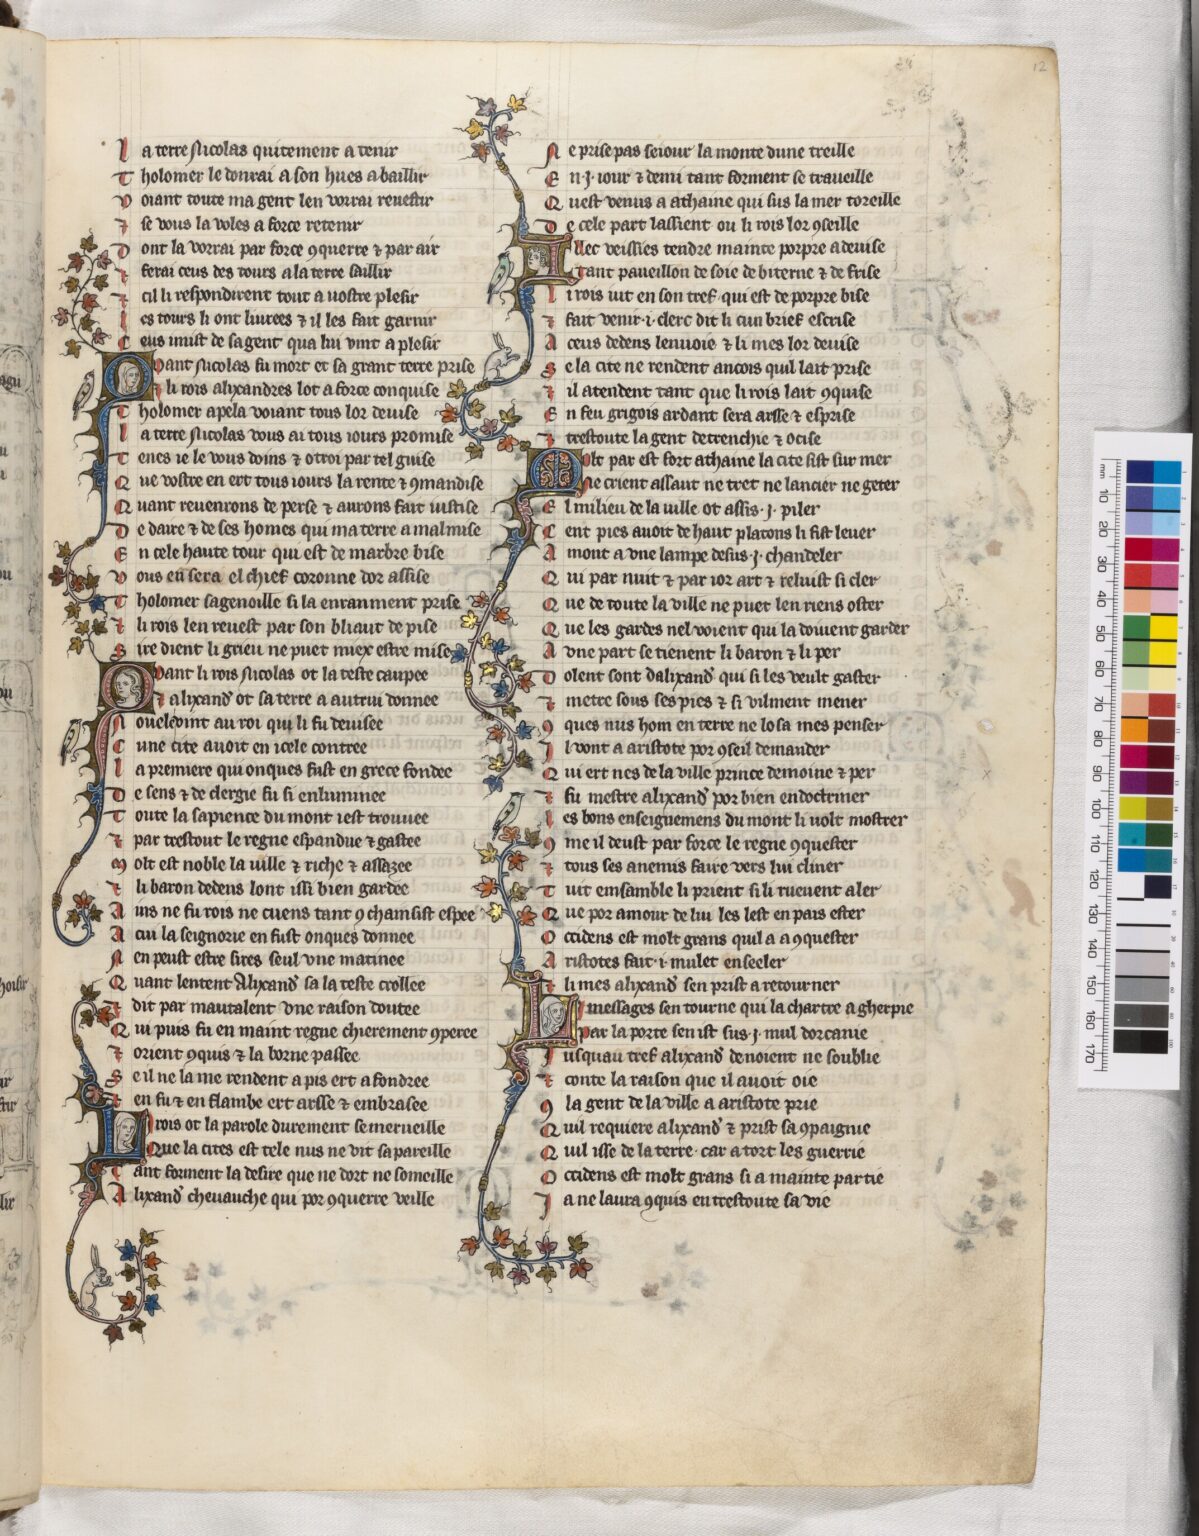 12
L a terre nicolas quitement a tenir
T holomer le donrai a son hues a baillir
V oiant toute ma gent len vorrai reuestir
⁊ se vous la voles a force retenir
D ont la vorrai par force ꝯquerre ⁊ par air
⁊ ferai ceus des tours a la terre saillir
⁊ cil li respondirent tout a uostre plesir
L es tours li ont liurees ⁊ il les fait garnir
C eus imist de sa gent qua lui vint a plesir
Q uant nicolas fu mort et sa grant terre prise
⁊ li rois alixandres lot a force conquise
T holomer apela voiant tous lor deuise
L a terre nicolas vous ai tous iours promise
T enes ie le vous doins ⁊ otroi par tel guise
Q ue vostre en ert tous iours la rente ⁊ ꝯmandise
Q uant reuenrons de perse ⁊ aurons fait iustise
D e daire ⁊ de ses homes qui ma terre a malmise
E n cele haute tour qui est de marbre bise
V ous en sera el chief coronne dor assise
T holomer sagenoille si la enranment prise
⁊ li rois len reuest par son bliaut de pise
S ire dient li grieu ne puet miex estre mise
Q uant li rois nicolas ot la teste caupee
⁊ alixand' ot sa terre a autrui donnee
N ouele vint au roi qui li fu deuisee
C une cite auoit en icele contree
L a premiere qui onques fust en grece fondee
D e sens ⁊ de clergie fu si enluminee
T oute la sapience du mont iest trouuee
⁊ par trestout le regne espandue ⁊ gastee
M olt est noble la uille ⁊ riche ⁊ assazee
⁊ li baron dedens lont issi bien gardee
A ins ne fu rois ne cuens tant ꝯ chainsist espee
A cui la seignorie en fust onques donnee
N en peust estre sires seul vne matinee
Q uant lentent Alixand' sa la teste crollee
⁊ dit par mautalent vne raison doutee
Q ui puis fu en maint regne chierement ꝯperee
⁊ orient ꝯquis ⁊ la borne passee
S e il ne la me rendent a pis ert afondree
⁊ en fu ⁊ en flambe ert arsse ⁊ embrasee
L i rois ot la parole durement semerueille
Que la cites est tele nus ne vit sa pareille
T ant forment la desire que ne dort ne someille
A lixand' cheuauche qui por ꝯquerre veille
N e prise pas seiour la monte dune treille
E n .j. iour ⁊ demi tant forment se traueille
Q uest venus a athaine qui sus la mer toreille
D e cele part lassient ou li rois lor ꝯseille
I llec veissies tendre mainte porpre a deuise
⁊ tant paueillon de soie de biterne ⁊ de frise
L i rois iut en son tref qui est de porpre bise
⁊ fait venir .i. clerc dit li cun brief escrise
A ceus dedens lenuoie ⁊ li mes lor deuise
S e la cite ne rendent ancois quil lait prise
⁊ il atendent tant que li rois lait ꝯquise
E n feu grigois ardant sera arsse ⁊ esprise
⁊ trestoute la gent detrenchie ⁊ ocise
M olt par est fort athaine la cite sist sur mer
Ne crient assaut ne tret ne lancier ne geter
E l milieu de la uille ot assis .j. piler
C ent pies auoit de haut platons li fist leuer
A mont a vne lampe desus .j. chandeler
Q ui par nuit ⁊ par ior art ⁊ reluist si cler
Q ue de toute la ville ne puet len riens oster
Q ue les gardes nel voient qui la doiuent garder
A vne part se tienent li baron ⁊ li per
D olent sont dalixand' qui si les veult gaster
⁊ metre sous ses pies ⁊ si vilment mener
ꝯ ques nus hom en terre ne losa mes penser
I l vont a aristote por ꝯseil demander
Q ui ert nes de la ville prince demoine ⁊ per
⁊ fu mestre alixand' por bien endoctriner
L es bons enseignemens du mont li uolt mostrer
ꝯ me il deust par force le regne ꝯquester
⁊ tous ses anemis faire vers lui cliner
T uit emsamble li prient si li rueuent aler
Q ue por amour de lui les lest en pais ester
O ccidens est molt grans quil a a ꝯquester
A ristotes fait .i. mulet enseeler
⁊ li mes alixand' sen prist a retourner
L i messages sen tourne qui la chartre a gherpie
Par la porte sen ist sus .j. mul dorcanie
J usquau tref alixand' denoient ne soublie
⁊ conte la raison que il auoit oie
ꝯ la gent de la ville a aristote prie
Q uil requiere alixand' ⁊ prist sa ꝯpaignie
Q uil isse de la terre car a tort les guerrie
O ccidens est molt grans si a mainte partie
J a ne laura ꝯquis en trestoute sa vie
mm 10 20 30 40 50 60 70 80 90 100 110 120 130 140 150 160 170